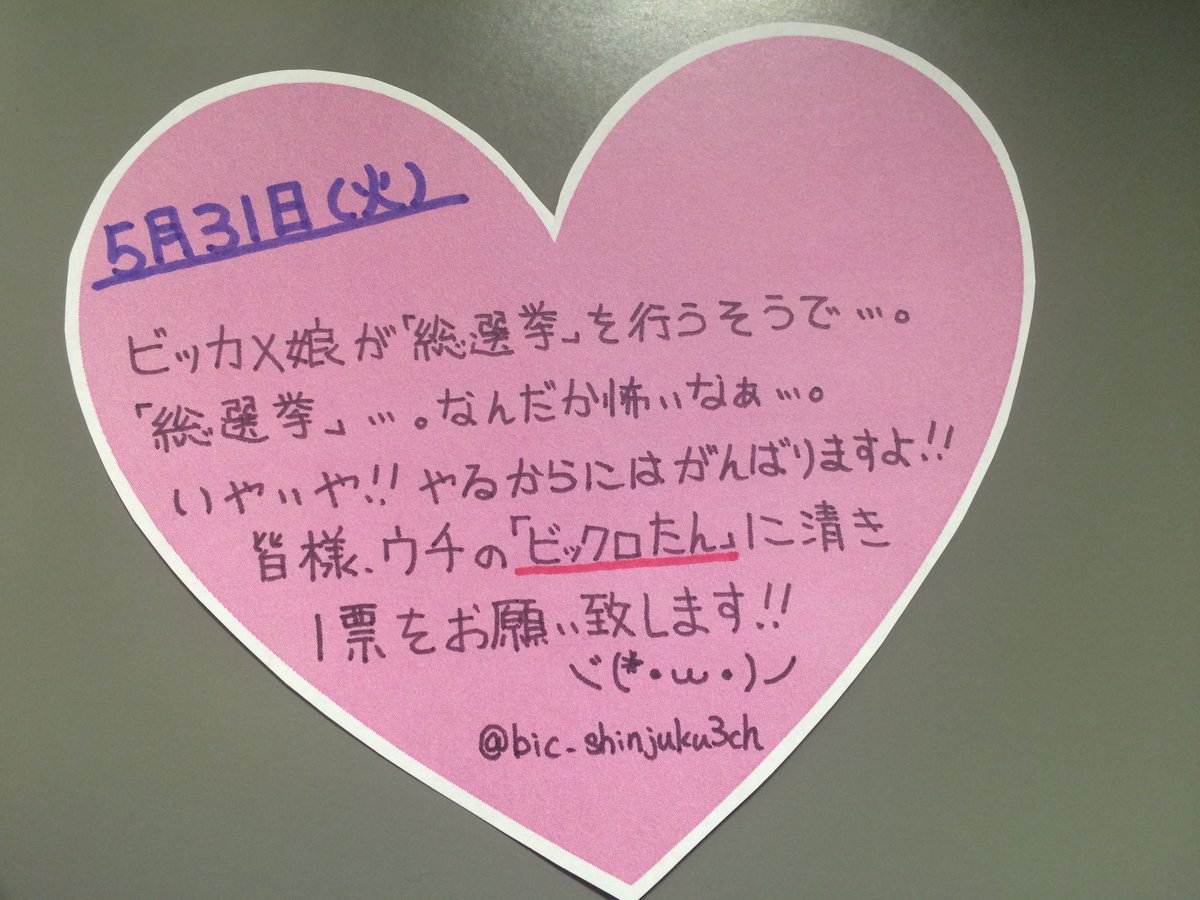 5月31日(火)
ビッカメ娘が「総選挙」を行うそうで…。
「総選挙」…。なんだか怖いなぁ…。
いやいや!!やるからにはがんばりますよ!!
皆様、ウチの「ビックロたん」に清き
1票をお願い致します!!
ヾ(*・ω・)ノ
@bic_shinjuku3ch